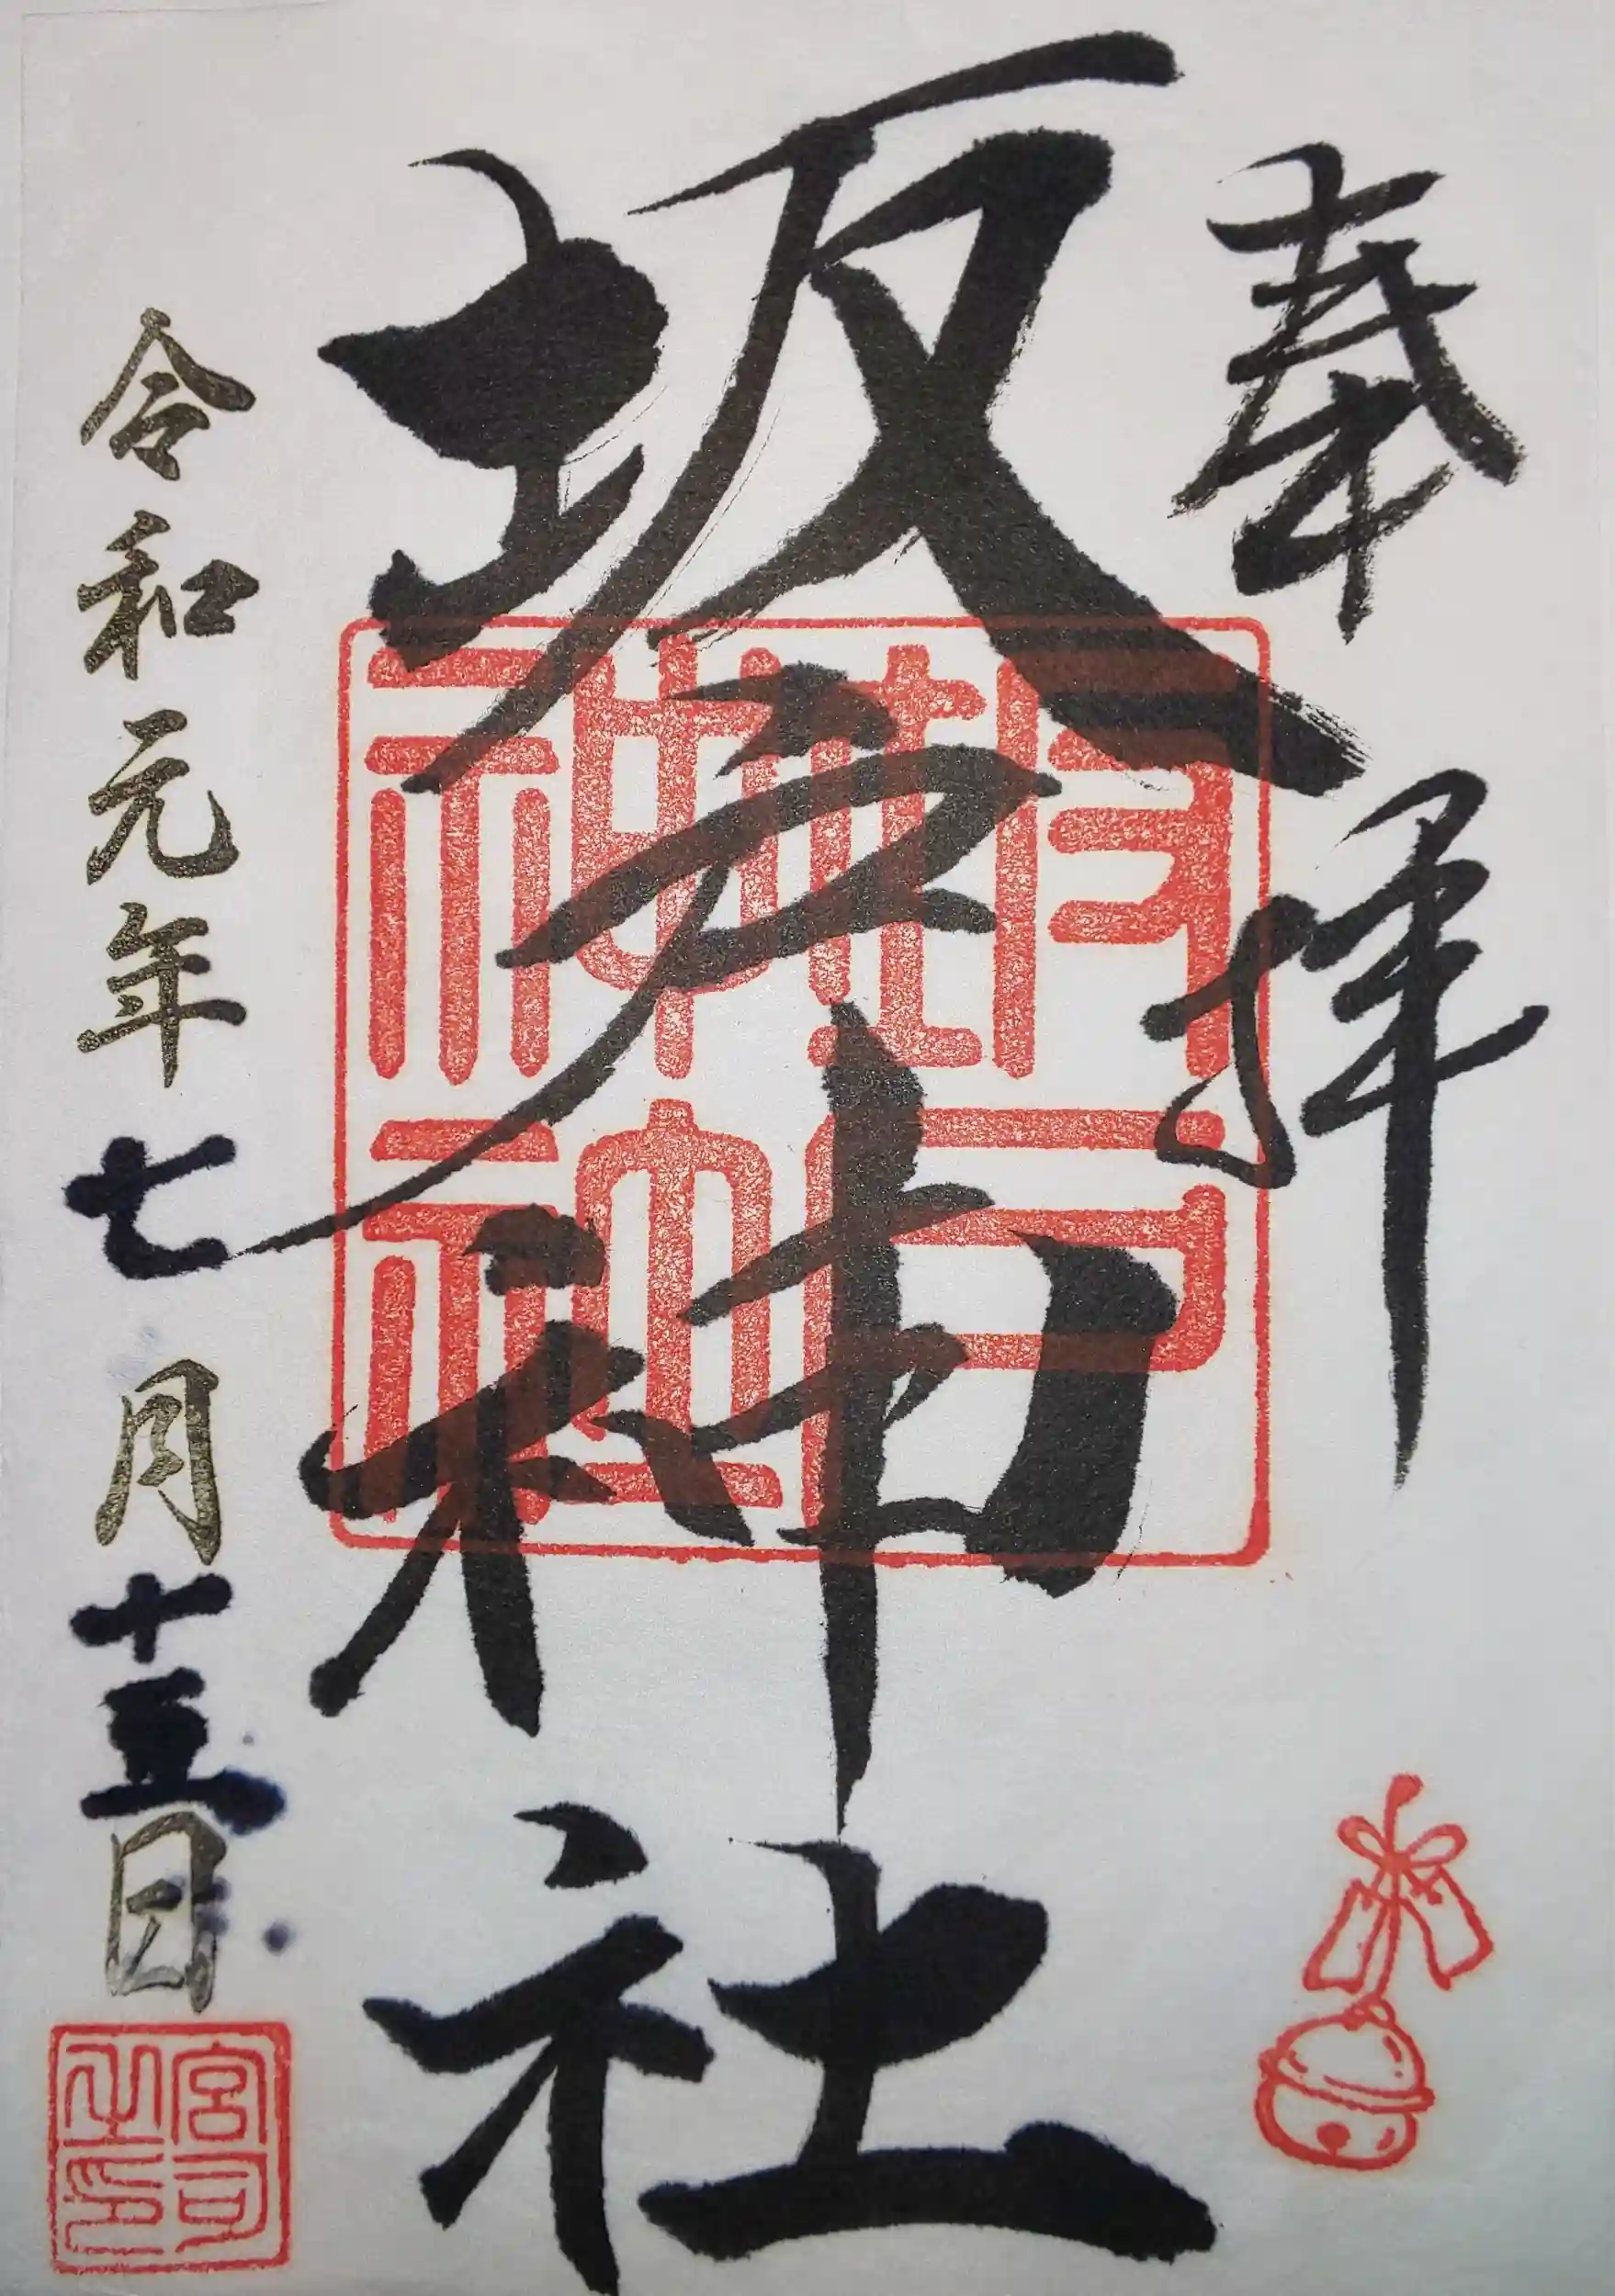 奉拝
坂戸神社
坂戸神社
令和元年七月十五日
宮司之印